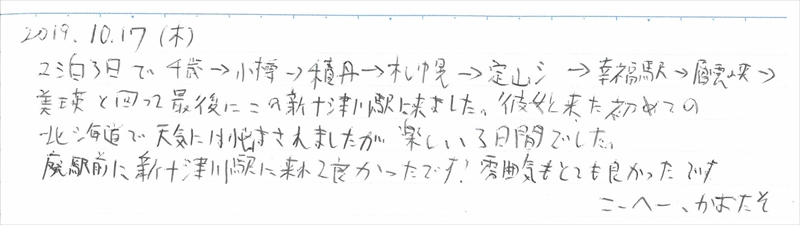 2019.10.17(木)
2泊3日で千歳→小樽→積丹→札幌→定山渓→幸福駅→層雲峡→
美瑛と回って最後にこの新十津川駅に来ました。彼女と来た初めての
北海道で天気には悩まされましたが楽しい3日間でした。
廃駅前に新十津川駅に来れて良かったです!雰囲気もとても良かったです
こーへー、かおたそ